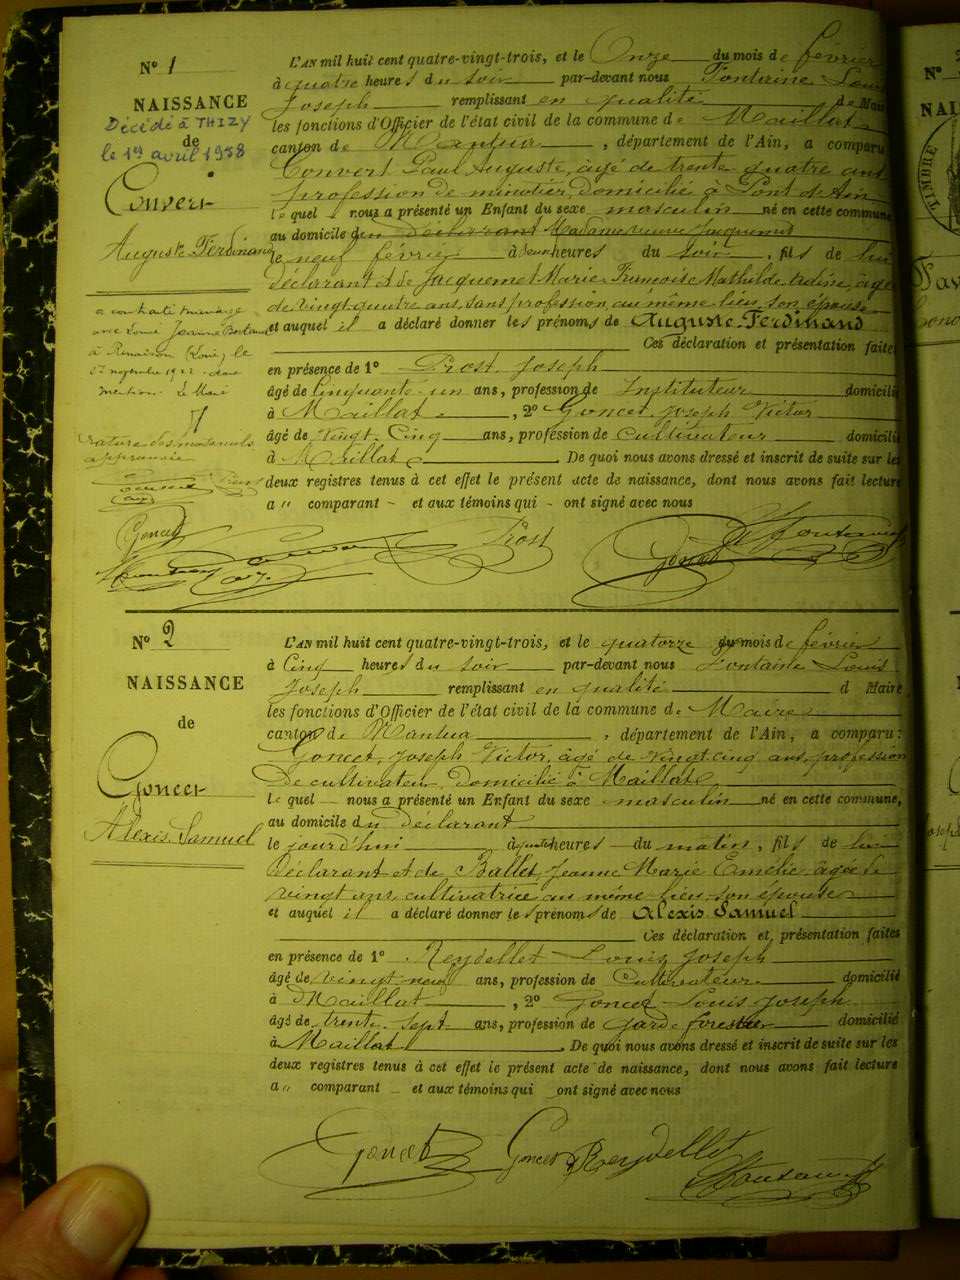 N° 1
NAISSANCE
Décédé à THIZY
de
le 19 avril 1958
Convert
Auguste Ferdinand
a contracté mariage
avec Jeanne
à Renaison (Loire) le
novembre 1922
mention Le Maire
rature des mots nuls
approuvée
L'AN mil huit cent quatre-vingt-trois, et le Onze du mois de février
à quatre heures du soir par-devant nous Fontaine Louis
Joseph remplissant en qualité de Maire
les fonctions d'Officier de l'état civil de la commune de Maillat
canton de Nantua, département de l'Ain, a comparu
Convert Paul Auguste, agé de trente quatre ans
profession de minotier, domicilié à Pont d'Ain
le quel nous a présenté un Enfant du sexe masculin né en cette commune
au domicile du déclarant Madame veuve Jacquemet
le neuf février à deux heures du soir, fils de lui
déclarant et de Jacquemet Marie Françoise Mathilde, agée
de vingt-quatre ans, sans profession au même lieu, son épouse
et auquel il a déclaré donner les prénoms de Auguste-Ferdinand
Ces déclaration et présentation faites
en présence de 1° Prost Joseph
âgé de Cinquante-un ans, profession de Instituteur domicilié
à Maillat, 2° Goncet Joseph Victor
âgé de Vingt-Cinq ans, profession de Cultivateur domicilié
à Maillat. De quoi nous avons dressé et inscrit de suite sur les
deux registres tenus à cet effet le présent acte de naissance, dont nous avons fait lecture
a " comparant - et aux témoins qui - ont signé avec nous
Goncet Prost Goncet Fontaine
N° 2
NAISSANCE
de
Goncet
Alexis Samuel
L'AN mil huit cent quatre-vingt-trois, et le quatorze du mois de février
à Cinq heures du soir par-devant nous Fontaine Louis
Joseph remplissant en qualité d Maire
les fonctions d'Officier de l'état civil de la commune de Maire
canton de Nantua, département de l'Ain, a comparu:
Goncet Joseph Victor, âgé de Vingt cinq ans, profession
De cultivateur domicilié à Maillat
le quel nous a présenté un Enfant du sexe masculin né en cette commune,
au domicile du déclarant
le jourd'hui à quatre heures du matin, fils de lui
Déclarant et de Ballet Jeanne Marie Emélie agée de
vingt ans cultivatrice au même lieu, son épouse
et auquel il a déclaré donner les prénoms de Alexis Samuel
Ces déclaration et présentation faites
en présence de 1° Reydellet Louis Joseph
âgé de vingt neuf ans, profession de Cultivateur domicilié
à Maillat, 2° Goncet Louis Joseph
âgé de trente sept ans, profession de garde forestier domicilié
à Maillat. De quoi nous avons dressé et inscrit de suite sur les
deux registres tenus à cet effet le présent acte de naissance, dont nous avons fait lecture
a " comparant et aux témoins qui ont signé avec nous
Goncet Goncet Reydellet Fontaine
N°
NAI
TIMBRE